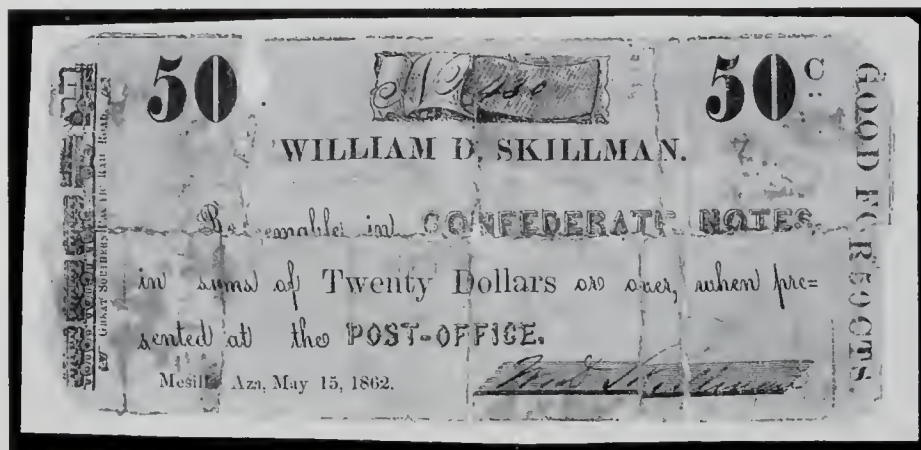 50
No
50 C
WILLIAM D. SKILLMAN.
Redeemable in CONFEDERATE NOTES,
in sums of Twenty Dollars or over, when pre=
sented at the POST-OFFICE.
Mesilla Aza, May 15, 1862.
Wm D Skillman
GOOD FOR 50 CTS.
GREAT SOUTHERN PACIFIC RAIL ROAD